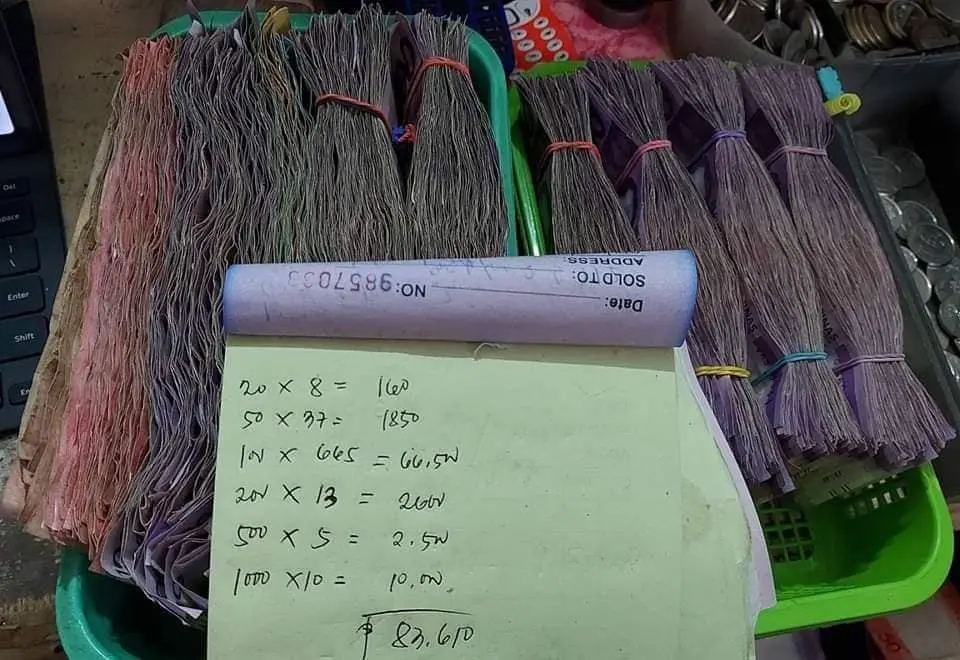 Del
space
Enter
Shift
ADDRESS:
SOLD TO:
NO:
Date:
20 × 8 = 160
50 × 37 = 1850
100 × 665 = 66.500
200 × 13 = 2600
500 × 5 = 2.500
1000 ×10 = 10.000
₱ 83.610
NAS